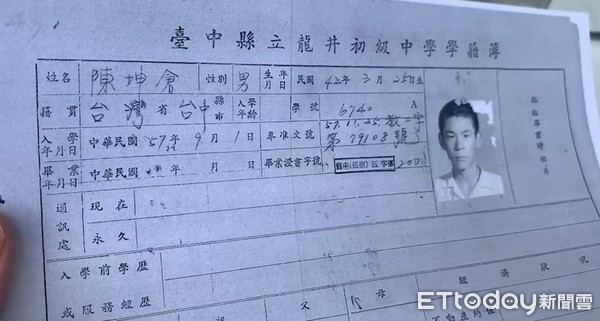 臺中縣立龍井初級中學學籍簿
姓名 陳坤倉 性別 男 生年月日 民國42年3月25日生
籍貫 台灣省台中縣市 入學年齡 學號 6740 A
57.11.25.教二字
入學年月日 中華民國57年9月1日 奉准文號 第79108號
畢業年月日 中華民國 年 月 日 畢業證書字號
通訊處 現在
永久
入學前學歷
或服務經歷
父 母 經濟狀況
ETtoday新聞雲